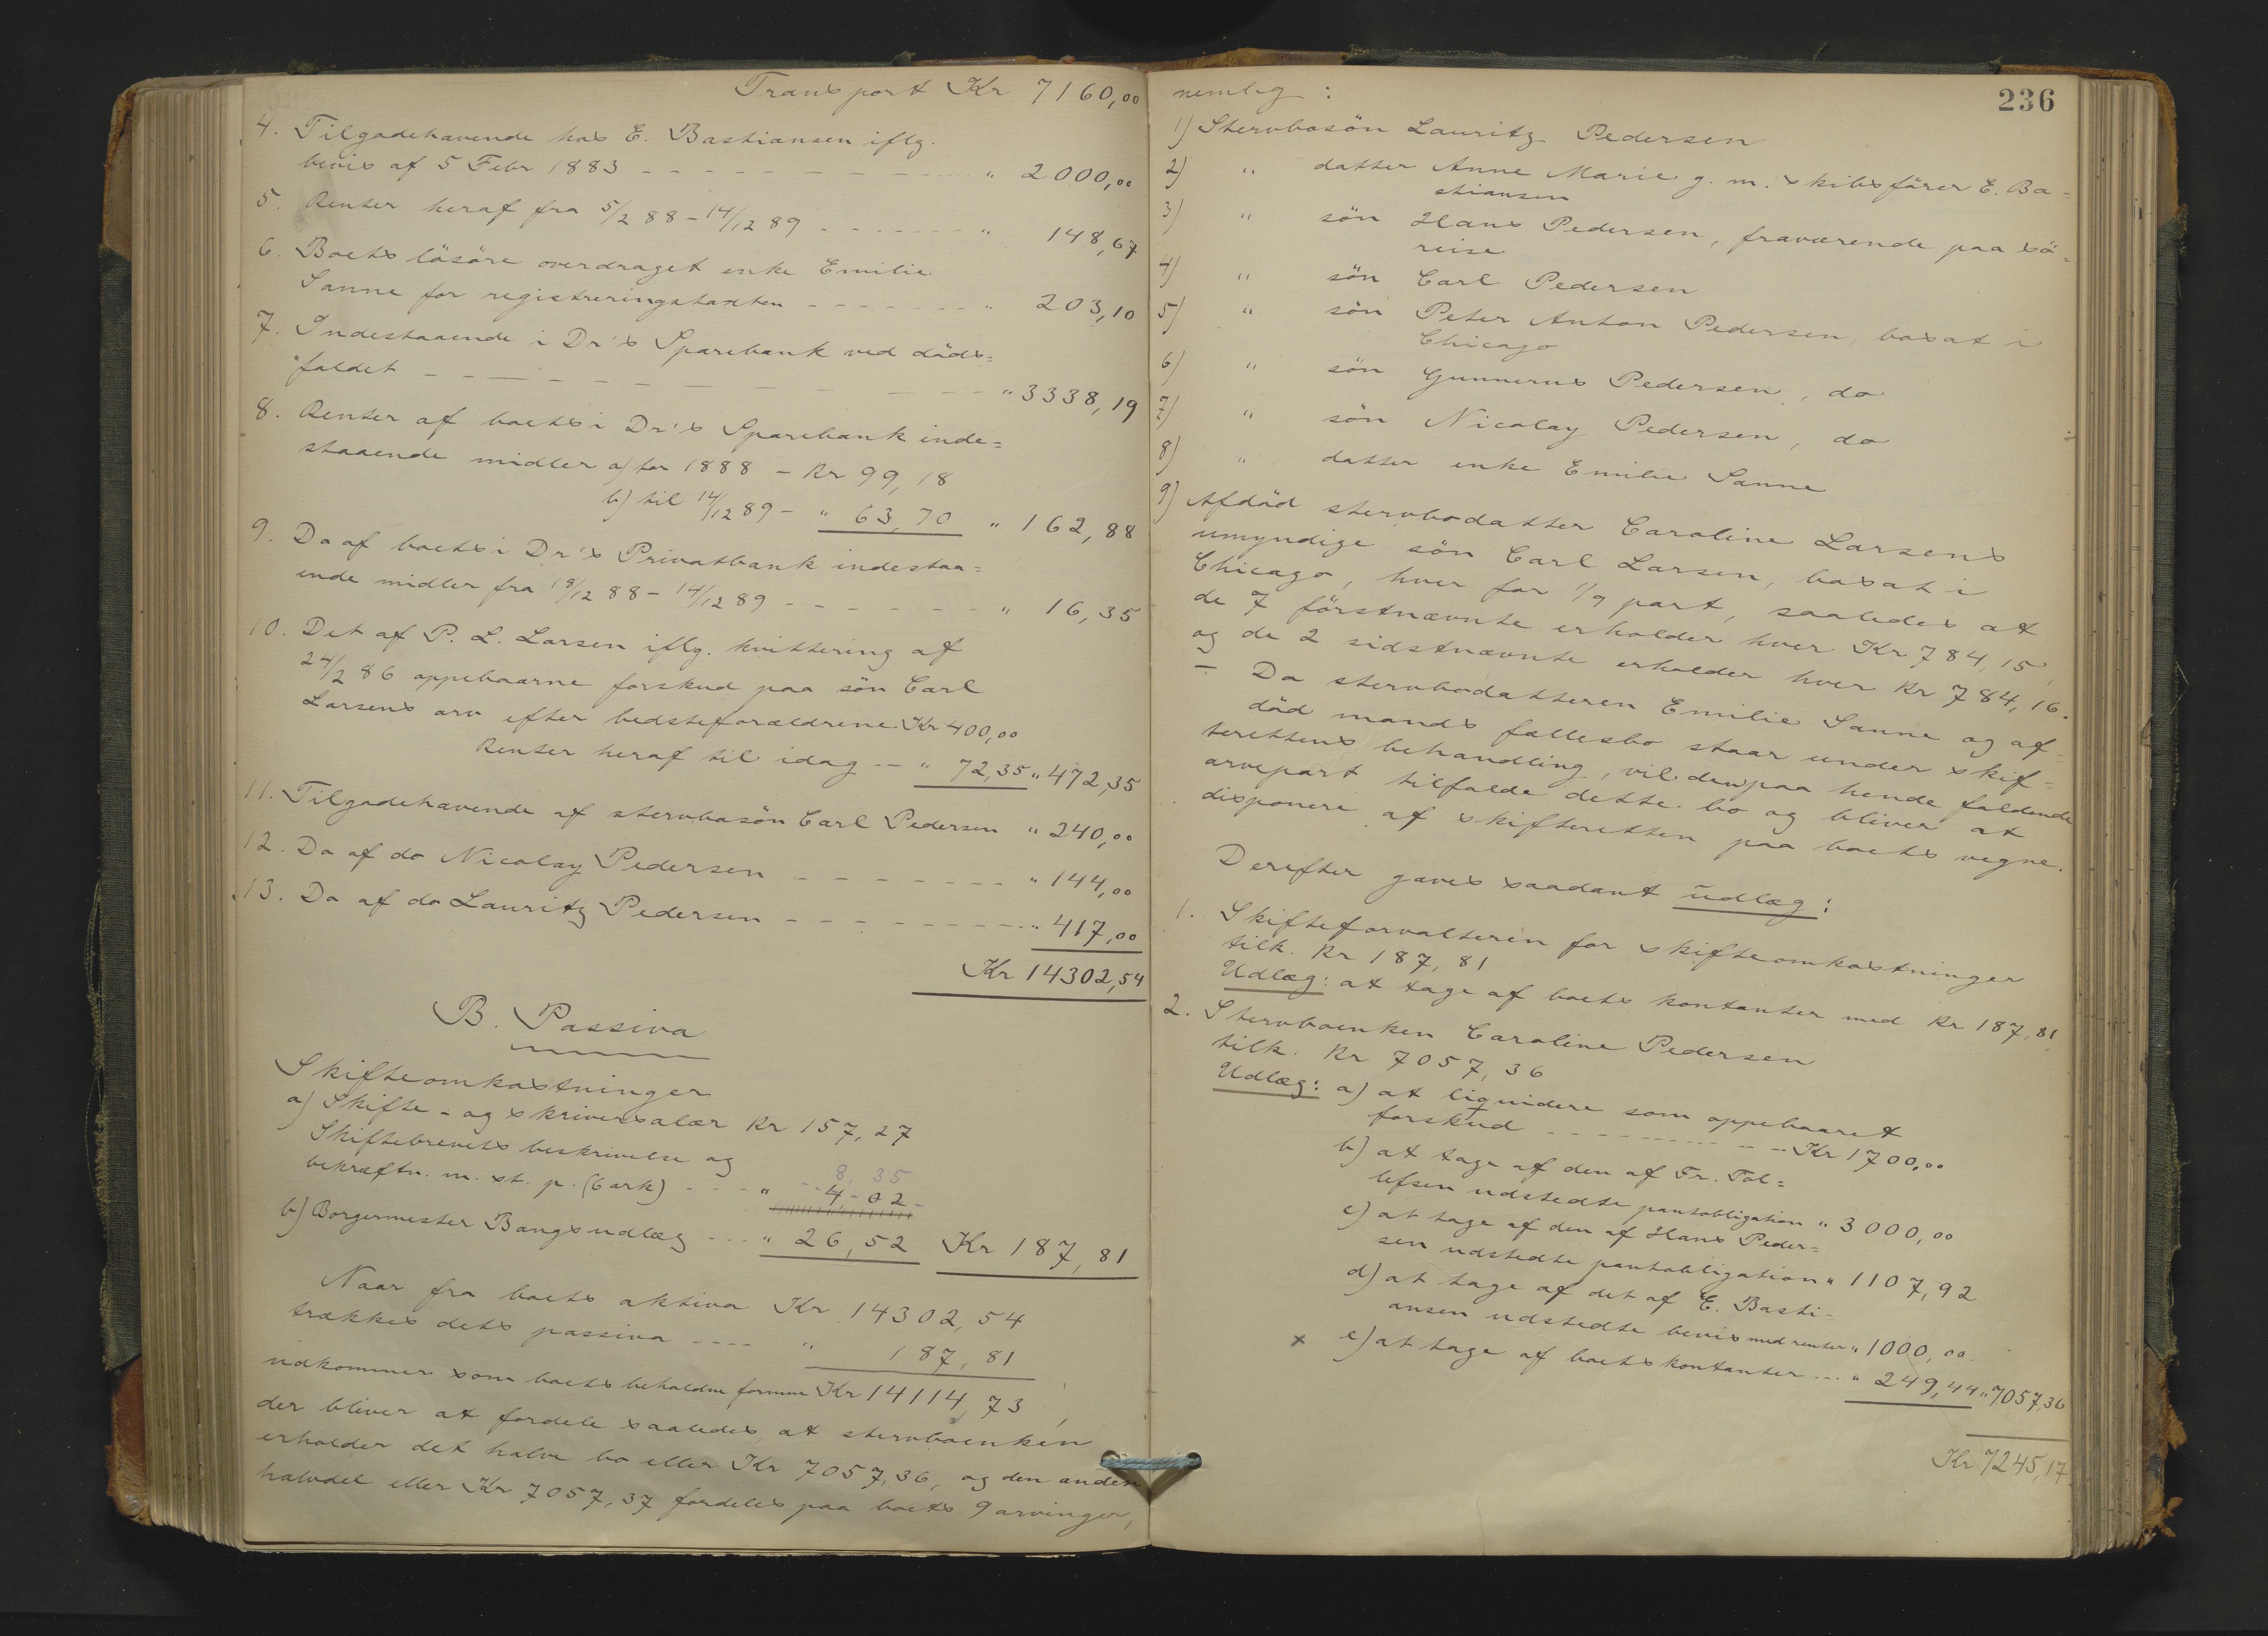 Transport Kr 7160,00
4. Tilgodehavende hos E. Bastiansen iflg.
bevis af 5 Febr 1883 - - - " 2000,00
5. Renter heraf fra 5/2 88 - 14/12 89 - - - " 148,67
6. Boets lösöre overdraget enke Emilie
Sanne for registreringstaxten - - - " 203,10
7. Indestaaende i Dr's Sparebank ved döds=
faldet - - - " 3338,19
8. Renter af boets i Dr's Sparebank inde=
staaende midler a) for 1888 - Kr 99,18
b) til 14/12 89 - " 63,70 " 162,88
9. Do af boets i Dr's Privatbank indestaa=
ende midler fra 18/12 88 - 14/12 89 - - - " 16,35
10. Det af P. L. Larsen iflg. kvittering af
24/2 86 oppebaarne forskud paa sön Carl
Larsens arv efter bedsteforældrene Kr 400,00
Renter heraf til idag - - " 72,35 " 472,35
11. Tilgodehavende af stervbosön Carl Pedersen " 240,00
12. Do af do Nicolay Pedersen - - - " 144,00
13. Do af do Lauritz Pedersen - - - " 417,00
Kr 14302,54
B. Passiva
Skifteomkostninger
a) Skifte- og skriversalær Kr 157,27
Skiftebrevets beskrivelse og 8,35
bekræftn. m. st. p. (6 ark) - - - " 4-02-
b) Borgermester Bangs udlæg - - - " 26,52 Kr 187,81
Naar fra boets aktiva Kr 14302,54
trækkes dets passiva - - - " 187,81
udkommer som boets beholdne formue Kr 14114,73,
der bliver at fordele saaledes at stervboenken
erholder det halve bo eller Kr 7057,36, og den anden
halvdel eller Kr 7057,37 fordeles paa boets 9 arvinger,
236
nemlig:
1) Stervbosön Lauritz Pedersen
2) " datter Anne Marie g. m. skibsförer E. Ba=
stiansen
3) " sön Hans Pedersen, fraværende paa sö=
reise
4) " sön Carl Pedersen
5) " sön Peter Anton Pedersen, bosat i
Chicago
6) " sön Gunnerus Pedersen, do
7) " sön Nicolay Pedersen, do
8) " datter enke Emilie Sanne
9) Afdöd stervbodatter Caroline Larsens
umyndige sön Carl Larsen, bosat i
Chicago, hver for 1/9 part, saaledes at
de 7 förstnævnte erholder hver Kr 784,15,
og de 2 sidstnævnte erholder hver Kr 784,16.
- Da stervbodatteren Emilie Sanne og af=
död mands fællesbo staar under skif=
terettens behandling, vil den paa hende faldende
arvepart tilfalde dette bo og bliver at
disponere af skifteretten paa boets vegne.
Derefter gaves saadant udlæg:
1. Skifteforvalteren for skifteomkostninger
tilk. Kr 187,81
Udlæg: at tage af boets kontanter med Kr 187,81
2. Stervboenken Caroline Pedersen
tilk. Kr 7057,36
Udlæg: a) at liquidere som oppebaaret
forskud - - - Kr 1700,00
b) at tage af den af Fr. Tol=
lefsen udstedte pantobligation " 3000,00
c) at tage af den af Hans Peder=
sen udstedte pantobligation " 1107,92
d) at tage af det af E. Basti=
ansen udstedte bevis med renter " 1000,00
x e) at tage af boets kontanter - - - " 249,44 " 7057,36
Kr 7245,17